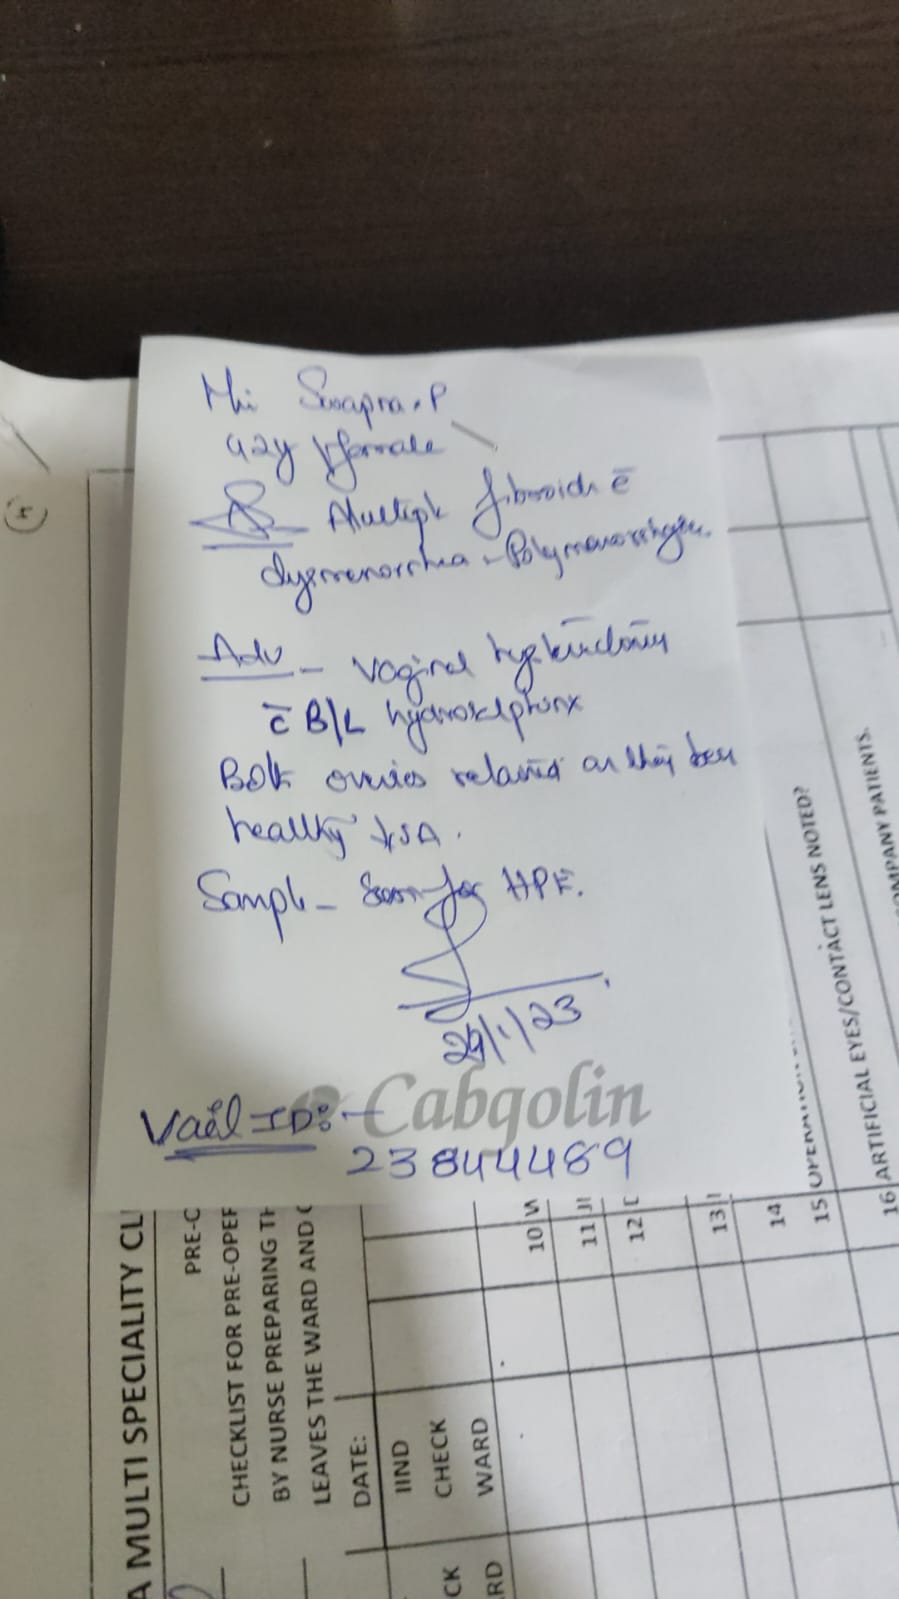 Swapna. P
42y / female
Multiple fibroids c̄
dysmenorrhea - Polymenorrhagia.
Adv - Vaginal hysterectomy
c̄ B/L hydrosalpinx
Both ovaries retained as they been
healthy
Sample - HPE.
29/1/23
Cabgolin
Vail ID:-
23844489
A MULTI SPECIALITY CL
PRE-C
CHECKLIST FOR PRE-OPER
BY NURSE PREPARING TH
LEAVES THE WARD AND
DATE:
IIND
CHECK
WARD
CK
RD
10 W
11
12
13
14
15
16 ARTIFICIAL EYES/CONTACT LENS NOTED?
OMPANY PATIENTS.